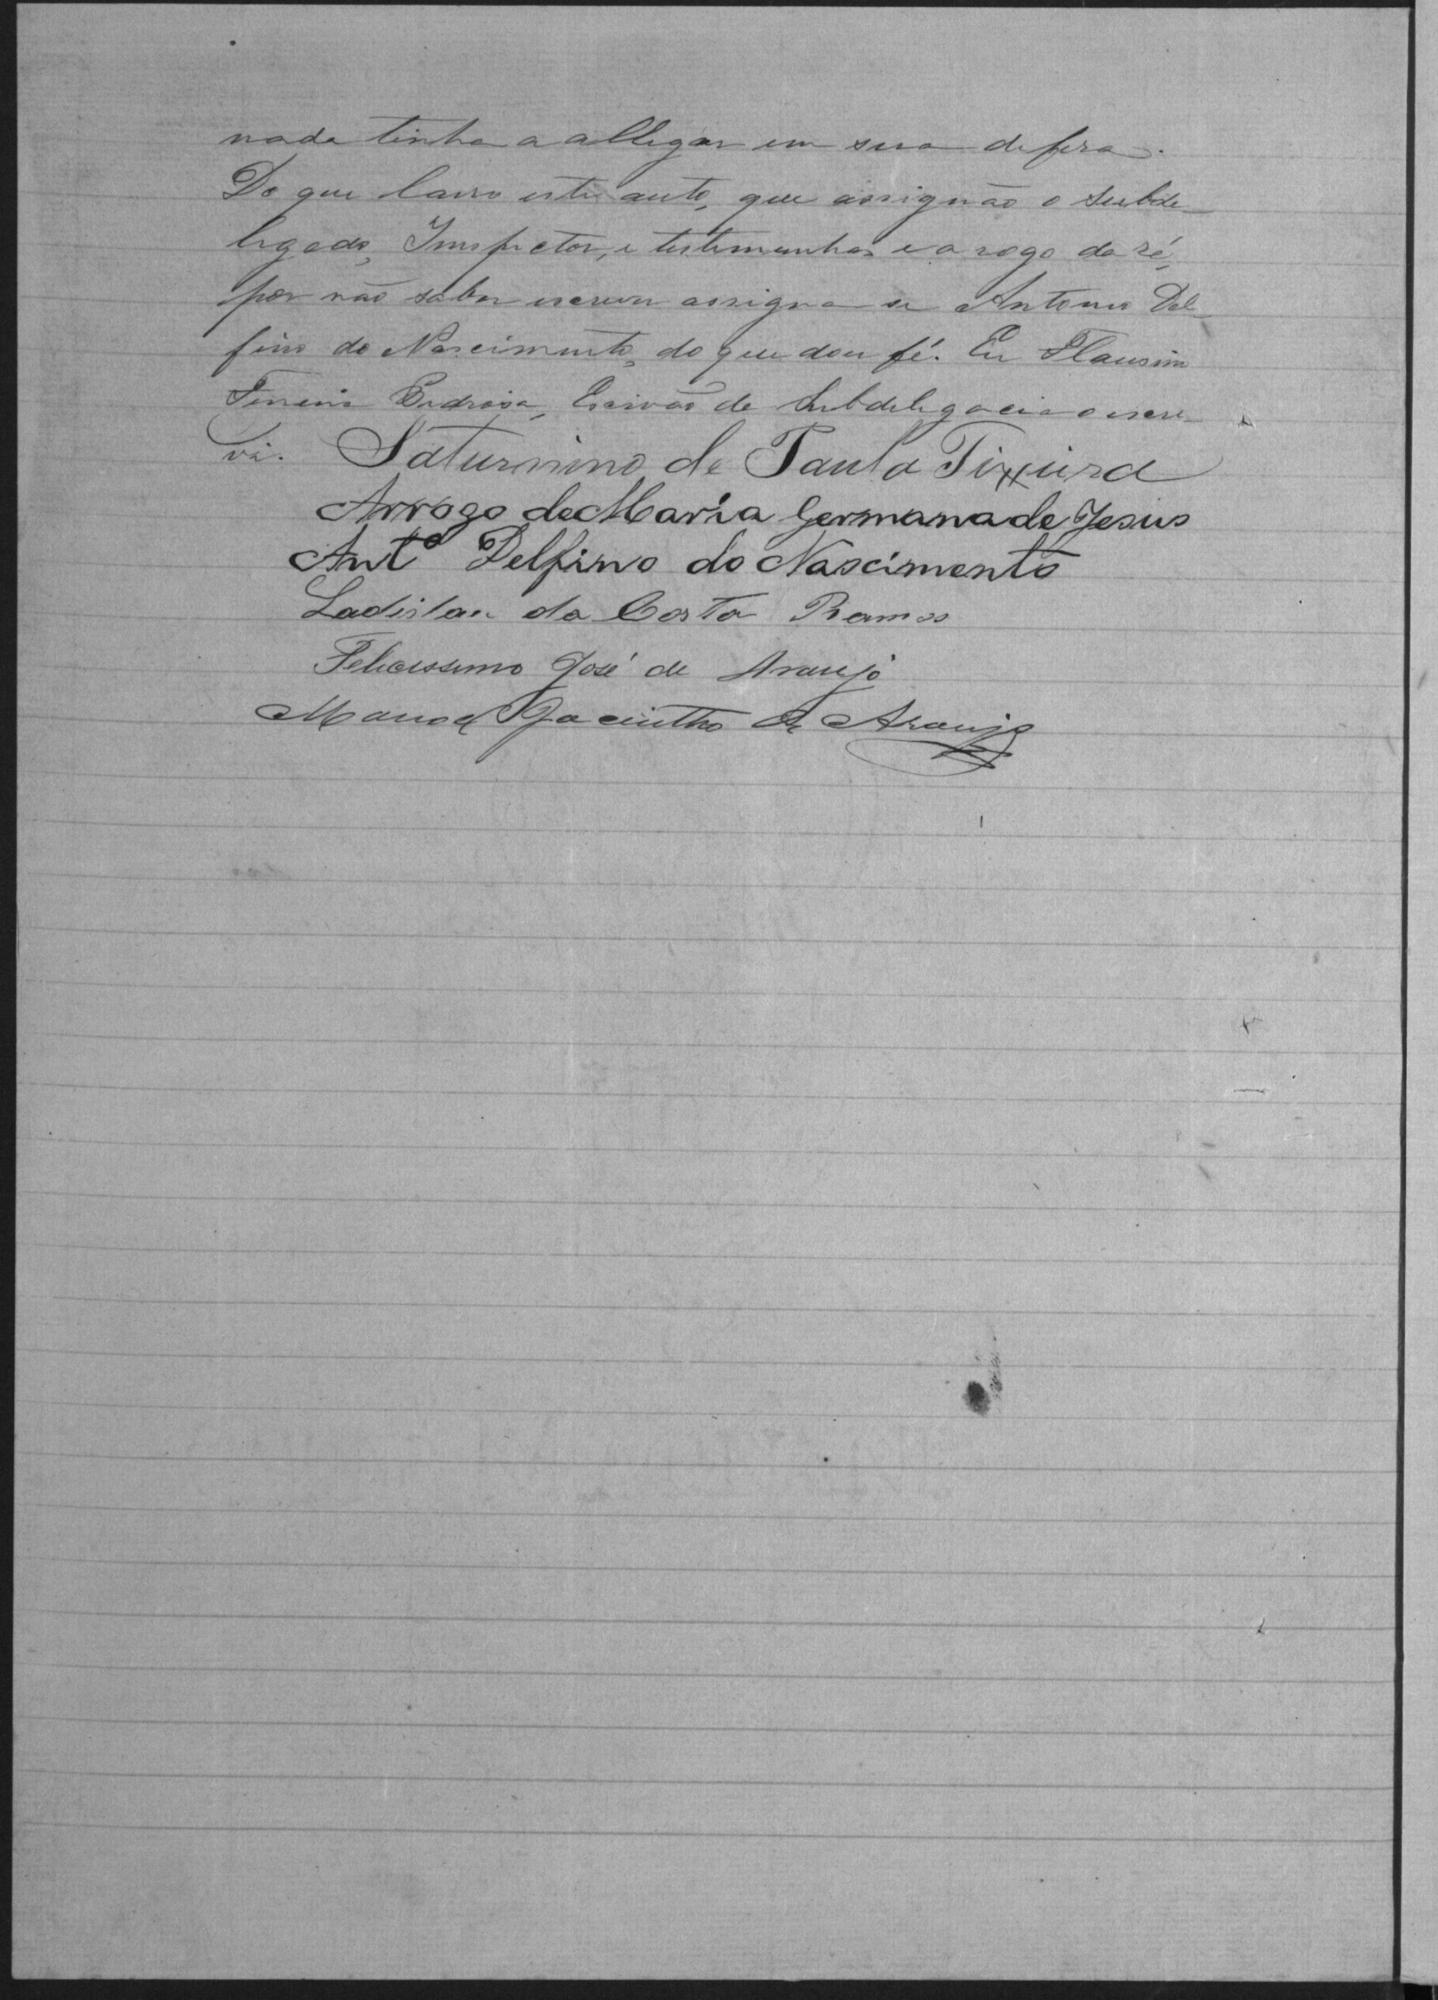 nada tinha a allegar em sua defesa.
Do que lavro este auto, que assignão o Subde-
legado, Inspector, e testemunhas e a rogo da ré,
por não saber escrever assigna se Antonio Del-
fino do Nascimento, do que dou fé. Eu Flausin
Pedrosa, Escivão de Subdelegacia o escre-
vi. Saturnino de Paula Tixeira
Arrogo de Maria Germana de Jesus
Antº Delfino do Nascimento
Ladislau da Costa Ramos
Felicissimo José de Araujo
Manoel Jacintho de Araujo